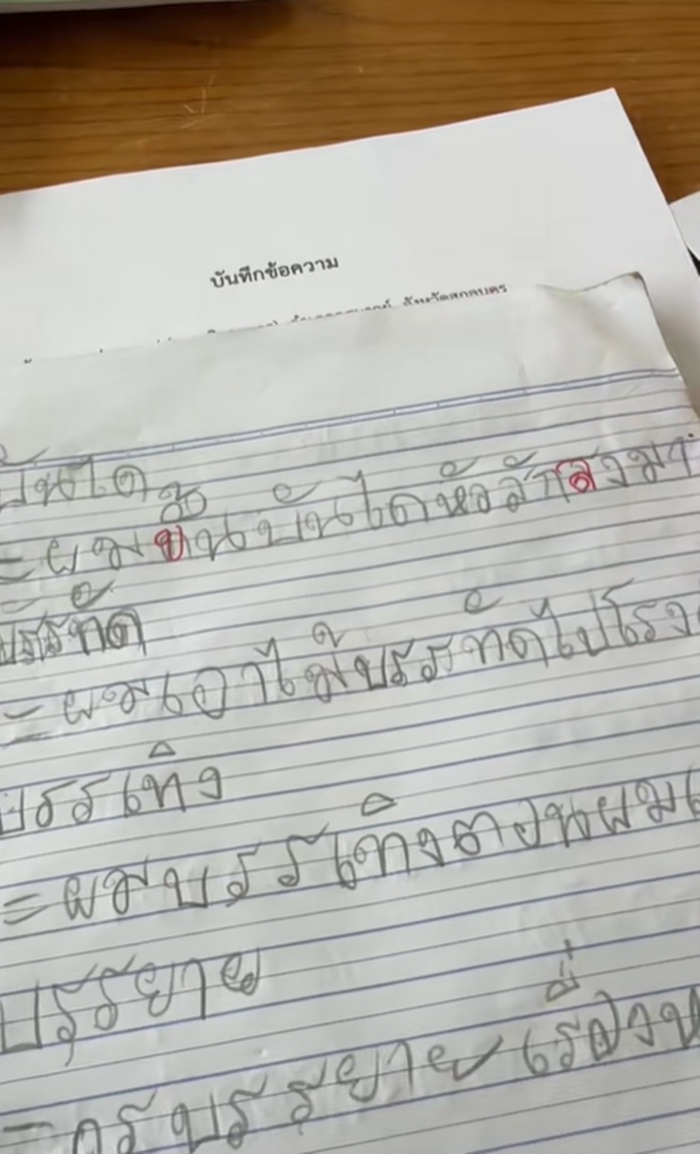 บันทึกข้อความ
บันได
=ผมขึ้นบันไดหัวลักลงมา
บรรทัด
=ผมเอาไม้บรรทัดไปโรง
บรรเทิง
=ผมบรรเทิงตอนผม
บรรยาย
=ครูบรรยายเรื่อง